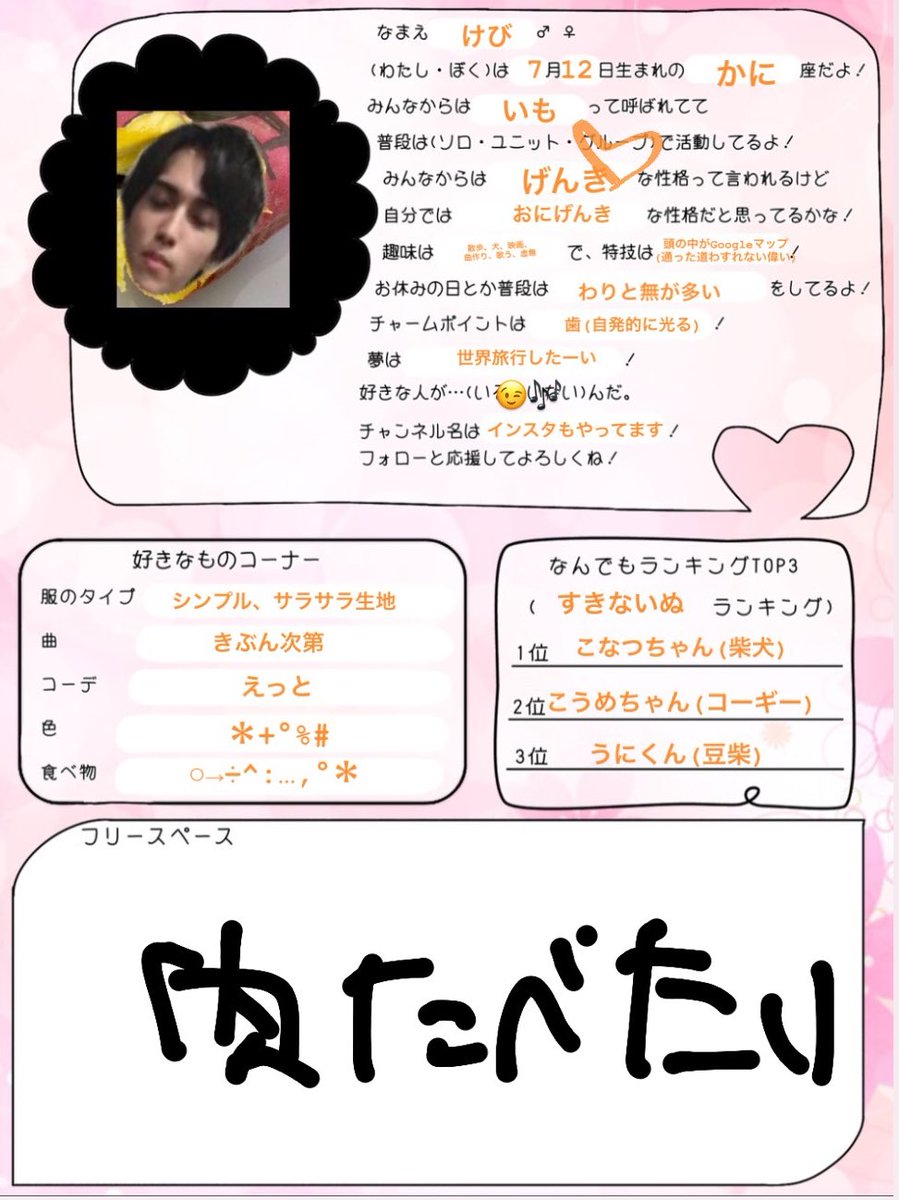 なまえ けび ♂ ♀
(わたし・ぼく)は 7月12日生まれの かに 座だよ!
みんなからは いも って呼ばれてて
普段は(ソロ・ユニット・グループ)で活動してるよ!
みんなからは げんき な性格って言われるけど
自分では おにげんき な性格だと思ってるかな!
趣味は 散歩、犬、映画、曲作り、歌う、虚無 で、特技は 頭の中がGoogleマップ(通った道わすれない偉い)!
お休みの日とか普段は わりと無が多い をしてるよ!
チャームポイントは 歯(自発的に光る) !
夢は 世界旅行したーい !
好きな人が…(い😉🎶い)んだ。
チャンネル名は インスタもやってます!
フォローと応援してよろしくね!
好きなものコーナー
服のタイプ シンプル、サラサラ生地
曲 きぶん次第
コーデ えっと
色 *+°%#
食べ物 ○→÷^:…,°*
なんでもランキングTOP3
( すきないぬ ランキング)
1位 こなつちゃん(柴犬)
2位 こうめちゃん(コーギー)
3位 うにくん(豆柴)
フリースペース
肉たべたい